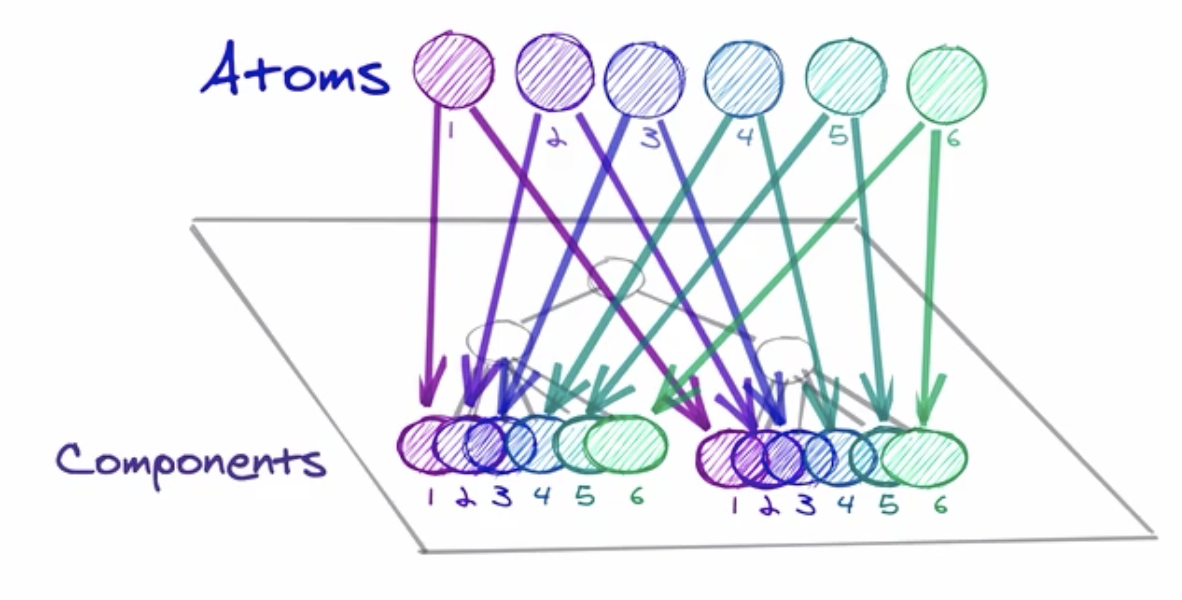 Atoms
1 2 3 4 5 6
Components
1 2 3 4 5 6
1 2 3 4 5 6